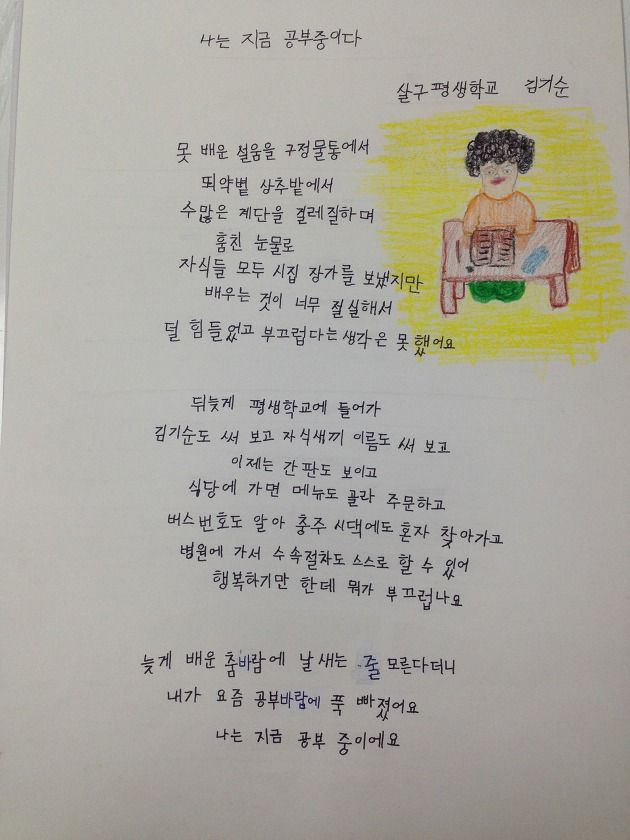 나는 지금 공부중이다
살구평생학교 김기순
못 배운 설움을 구정물통에서
뙤약볕 상추밭에서
수많은 계단을 걸레질하며
훔친 눈물로
자식들 모두 시집 장가를 보냈지만
배우는 것이 너무 절실해서
덜 힘들었고 부끄럽다는 생각은 못 했어요
뒤늦게 평생학교에 들어가
김기순도 써 보고 자식새끼 이름도 써 보고
이제는 간판도 보이고
식당에 가면 메뉴도 골라 주문하고
버스번호도 알아 충주 시댁에도 혼자 찾아가고
병원에 가서 수속절차도 스스로 할 수 있어
행복하기만 한데 뭐가 부끄럽나요
늦게 배운 춤바람에 날 새는 줄 모른다더니
내가 요즘 공부바람에 푹 빠졌어요
나는 지금 공부 중이에요